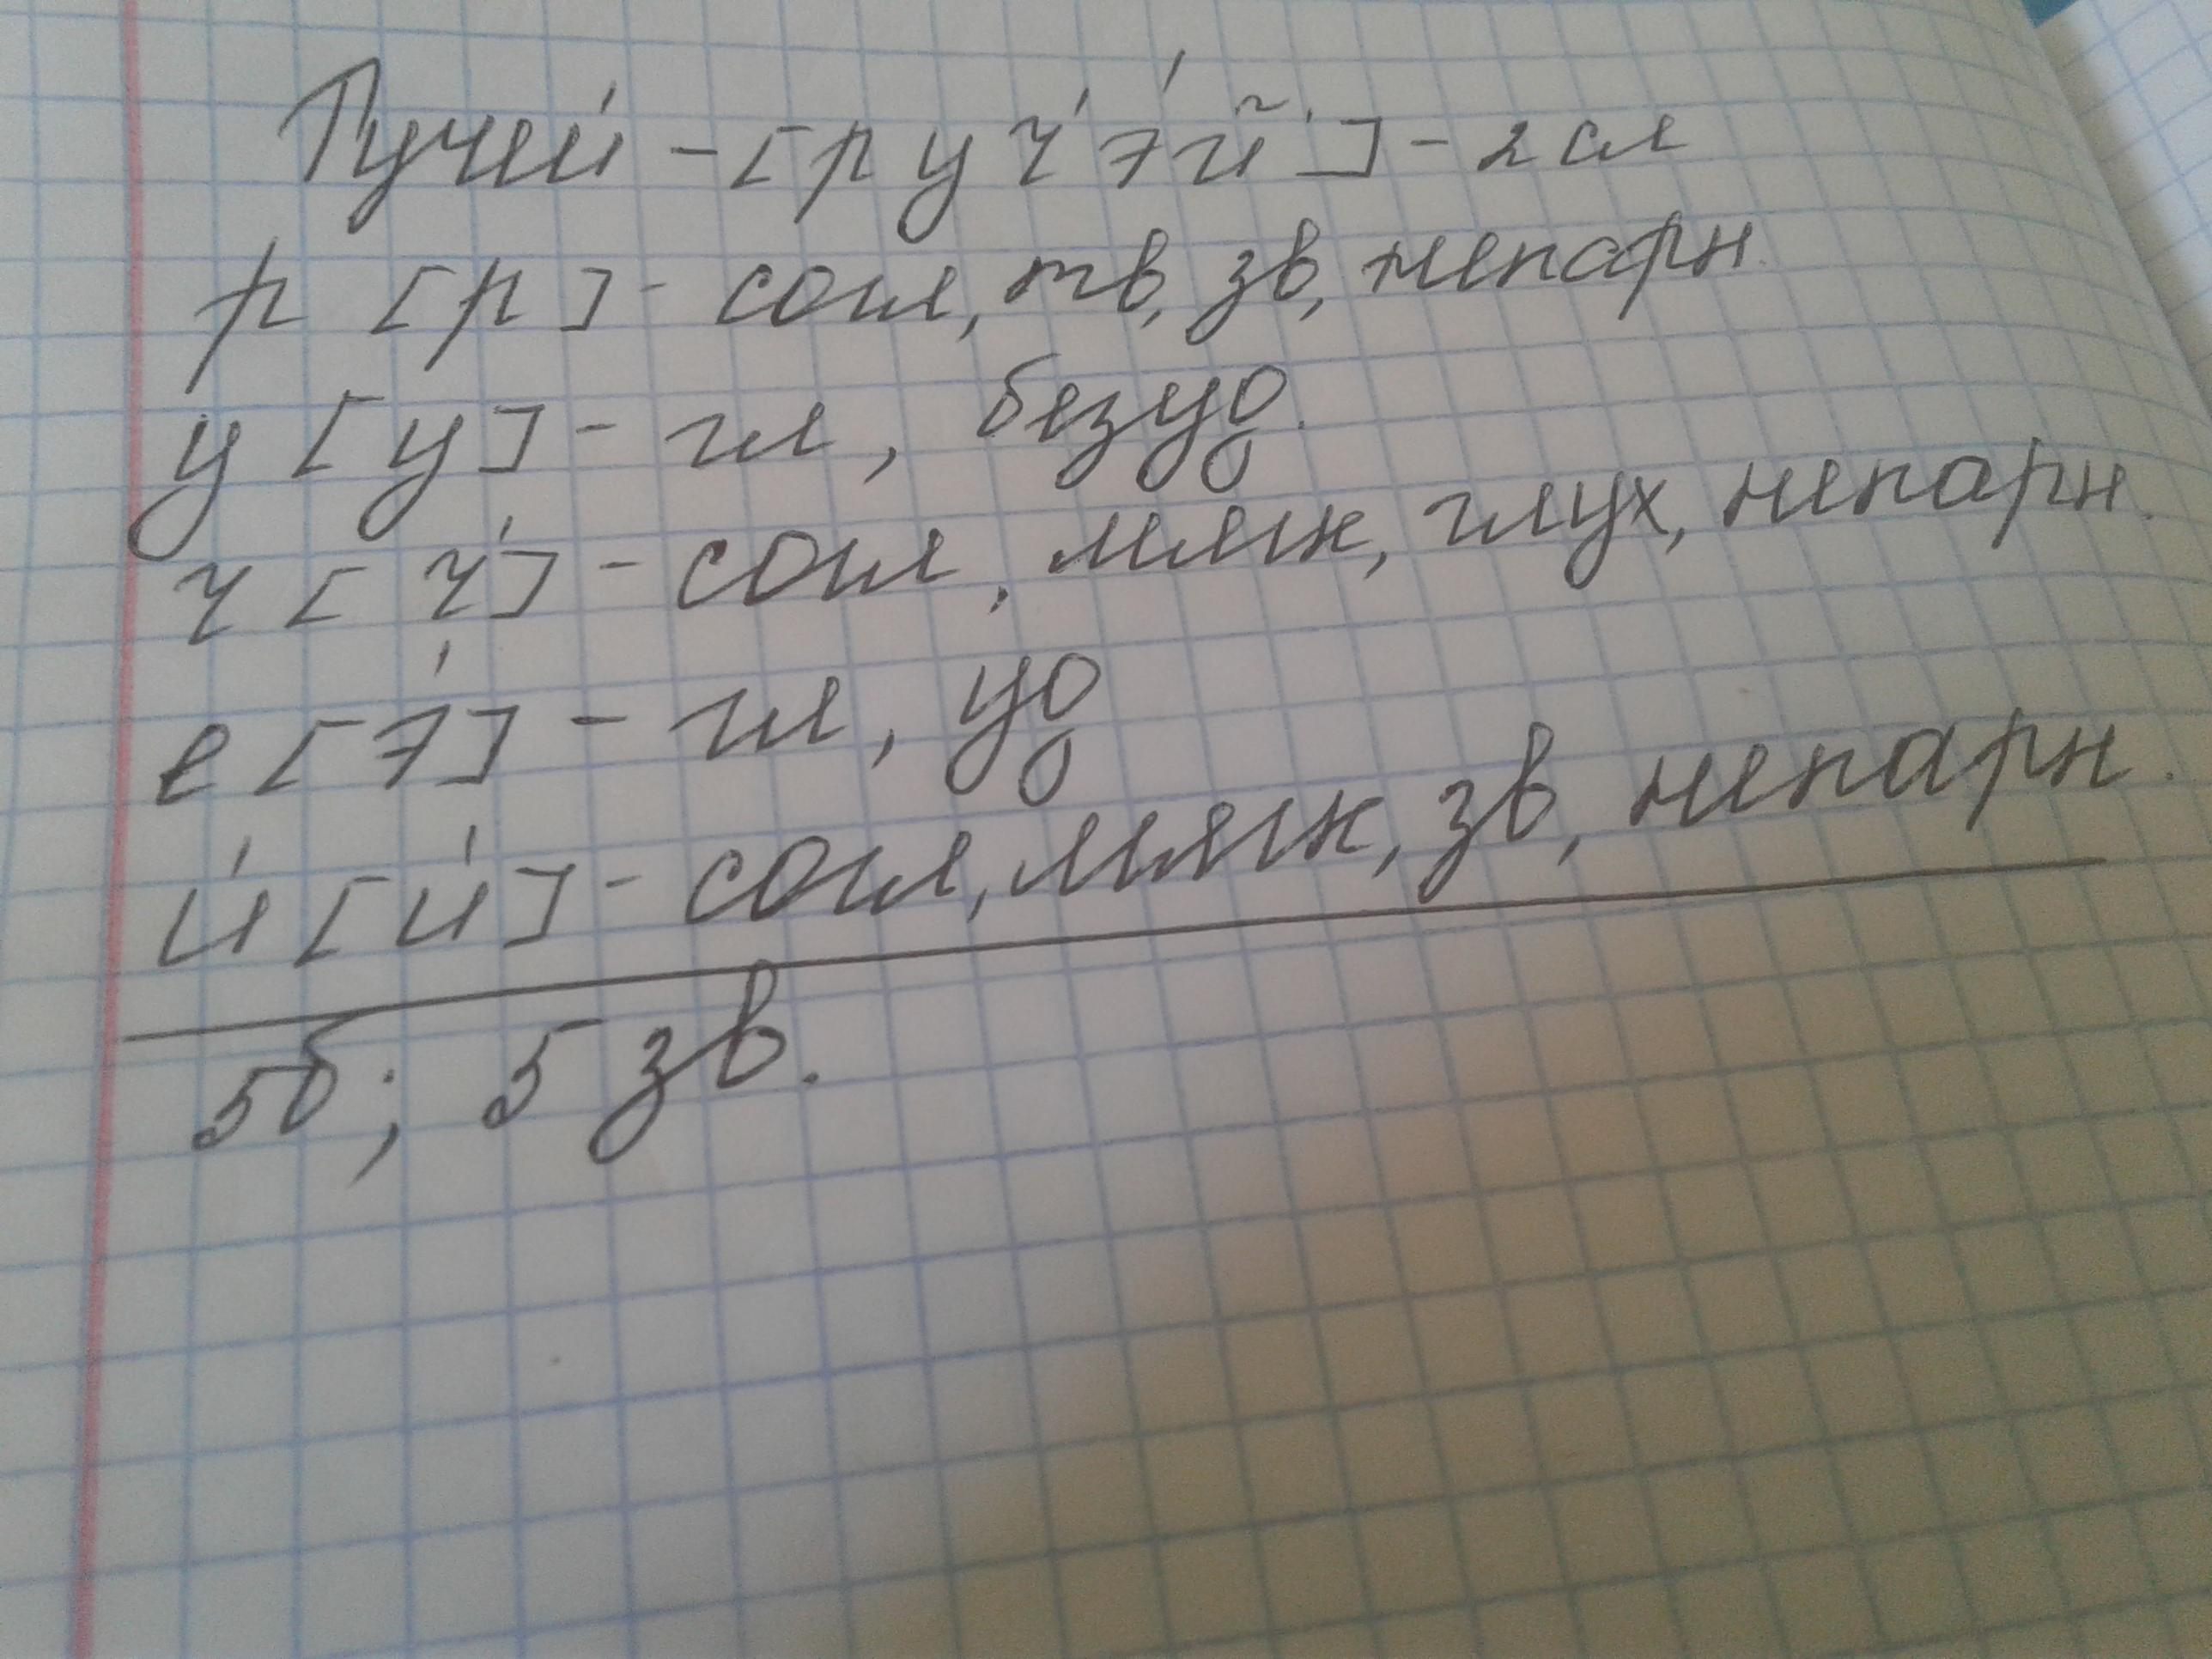 Ручей - [руч'э́й'] - 2 сл
р [р] - согл, тв, зв, непарн.
у [у] - гл, безуд.
ч [ч'] - согл, мягк, глух, непарн.
е [э́] - гл, уд
й [й] - согл, мягк, зв, непарн.
5б; 5 зв.